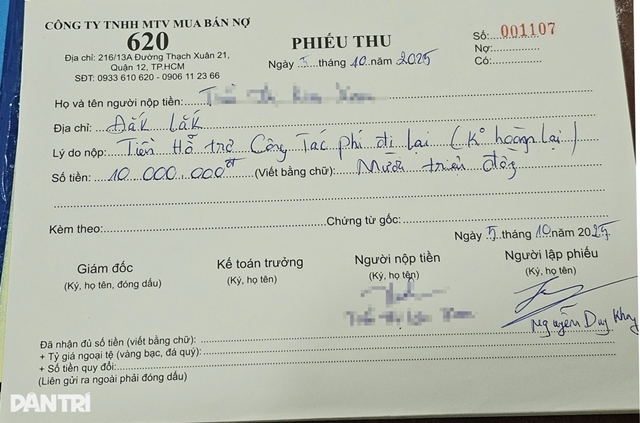 CÔNG TY TNHH MTV MUA BÁN NỢ
620
Địa chỉ: 216/13A Đường Thạch Xuân 21,
Quận 12, TP.HCM
SĐT: 0933 610 620 - 0906 11 23 66
PHIẾU THU
Ngày 5 tháng 10 năm 2025
Số: 001107
Nợ:
Có:
Họ và tên người nộp tiền:
Địa chỉ: Đắk Lắk
Lý do nộp: Tiền Hỗ trợ Công Tác phí đi lại (Ko hoàn lại)
Số tiền: 10 000 000đ (Viết bằng chữ): Mười triệu đồng
Kèm theo: Chứng từ gốc:
Ngày 5 tháng 10 năm 2025
Giám đốc
(Ký, họ tên, đóng dấu)
Kế toán trưởng
(Ký, họ tên)
Người nộp tiền
(Ký, họ tên)
Người lập phiếu
(Ký, họ tên)
Nguyễn Duy
Đã nhận đủ số tiền (viết bằng chữ):
+ Tỷ giá ngoại tệ (vàng bạc, đá quý):
+ Số tiền quy đổi:
(Liên gửi ra ngoài phải đóng dấu)
DÂN TRÍ